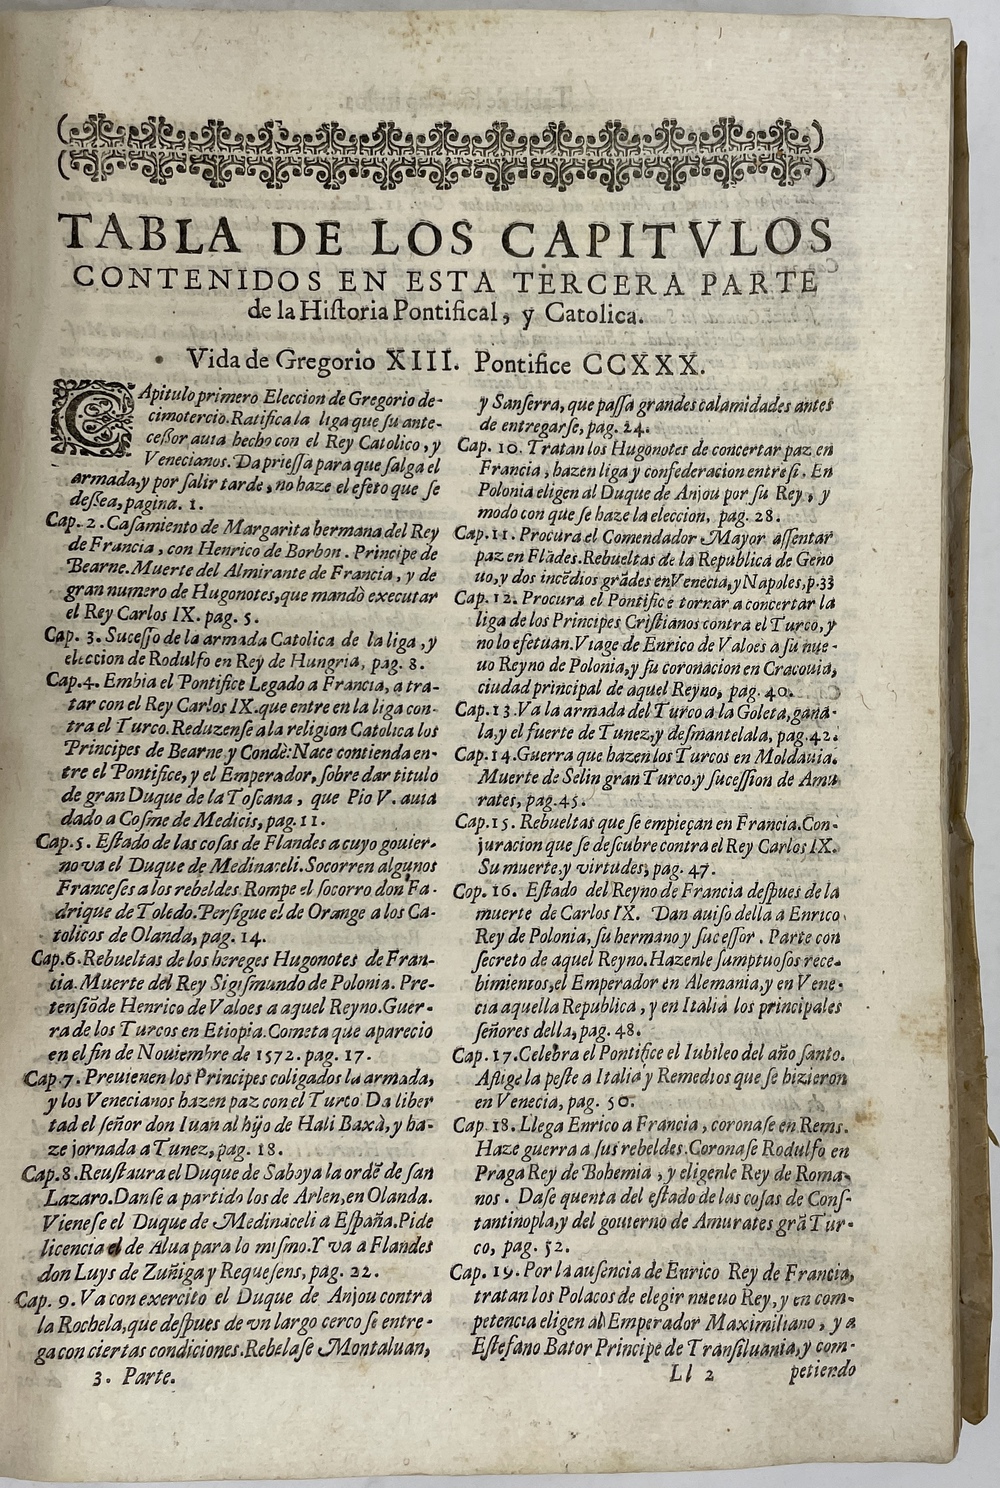 TABLA DE LOS CAPITVLOS
CONTENIDOS EN ESTA TERCERA PARTE
de la Hiſtoria Pontifical, y Catolica.
Vida de Gregorio XIII. Pontifice CCXXX.
CApitulo primero Eleccion de Gregorio de-
cimotercio. Ratifica la liga que ſu ante-
ceſſor auia hecho con el Rey Catolico, y
Venecianos. Da prieſſa para que ſalga el
armada, y por ſalir tarde, no haze el efeto que ſe
deſſea, pagina. 1.
Cap. 2. Caſamiento de Margarita hermana del Rey
de Francia, con Henrico de Borbon. Principe de
Bearne. Muerte del Almirante de Francia, y de
gran numero de Hugonotes, que mandò executar
el Rey Carlos IX. pag. 5.
Cap. 3. Suceſſo de la armada Catolica de la liga, y
eleccion de Rodulfo en Rey de Hungria, pag. 8.
Cap. 4. Embia el Pontifice Legado a Francia, a tra-
tar con el Rey Carlos IX. que entre en la liga con-
tra el Turco. Reduzenſe a la religion Catolica los
Principes de Bearne, y Condè: Nace contienda en-
tre el Pontifice, y el Emperador, ſobre dar titulo
de gran Duque de la Toſcana, que Pio V. auia
dado a Coſme de Medicis, pag. 11.
Cap. 5. Eſtado de las coſas de Flandes a cuyo gouier-
no va el Duque de Medinaceli. Socorren algunos
Franceſes a los rebeldes. Rompe el ſocorro don Fa-
drique de Toledo. Perſigue el de Orange a los Ca-
tolicos de Olanda, pag. 14.
Cap. 6. Rebueltas de los hereges Hugonotes de Fran-
cia. Muerte del Rey Sigiſmundo de Polonia. Pre-
tenſiõ de Henrico de Valoes a aquel Reyno. Guer-
ra de los Turcos en Etiopia. Cometa que aparecio
en el fin de Nouiembre de 1572. pag. 17.
Cap. 7. Preuienen los Principes coligados la armada,
y los Venecianos hazen paz con el Turco. Da liber
tad el ſeñor don Iuan al hijo de Hali Baxà, y ha-
ze jornada a Tunez, pag. 18.
Cap. 8. Reuſtaura el Duque de Saboya la ordẽ de ſan
Lazaro. Danſe a partido los de Arlen, en Olanda.
Vieneſe el Duque de Medinaceli a Eſpaña. Pide
licencia el de Alua para lo miſmo. Y va a Flandes
don Luys de Zuñiga y Requeſens, pag. 22.
Cap. 9. Va con exercito el Duque de Anjou contra
la Rochela, que deſpues de vn largo cerco ſe entre-
ga con ciertas condiciones. Rebelaſe Montaluan,
3. Parte.
y Sanſerra, que paſſa grandes calamidades antes
de entregarſe, pag. 24.
Cap. 10. Tratan los Hugonotes de concertar paz en
Francia, hazen liga y confederacion entre ſi. En
Polonia eligen al Duque de Anjou por ſu Rey, y
modo con que ſe haze la eleccion, pag. 28.
Cap. 11. Procura el Comendador Mayor aſſentar
paz en Flãdes. Rebueltas de la Republica de Geno
uo, y dos incẽdios grãdes en Venecia, y Napoles, p. 33
Cap. 12. Procura el Pontifice tornar a concertar la
liga de los Principes Criſtianos contra el Turco, y
no lo efetuan. Viage de Enrico de Valoes a ſu nue-
uo Reyno de Polonia, y ſu coronacion en Cracouia,
ciudad principal de aquel Reyno, pag. 40.
Cap. 13. Va la armada del Turco a la Goleta, gana-
la, y el fuerte de Tunez, y deſmantelala, pag. 42.
Cap. 14. Guerra que hazen los Turcos en Moldauia.
Muerte de Selin gran Turco, y ſuceſſion de Amu
rates, pag. 45.
Cap. 15. Rebueltas que ſe empieçan en Francia. Con-
juracion que ſe deſcubre contra el Rey Carlos IX.
Su muerte, y virtudes, pag. 47.
Cop. 16. Eſtado del Reyno de Francia deſpues de la
muerte de Carlos IX. Dan auiſo della a Enrico
Rey de Polonia, ſu hermano y ſuceſſor. Parte con
ſecreto de aquel Reyno. Hazenle ſumptuoſos rece-
bimientos, el Emperador en Alemania, y en Vene-
cia aquella Republica, y en Italia los principales
ſeñores della, pag. 48.
Cap. 17. Celebra el Pontifice el Iubileo del año ſanto.
Aflige la peſte a Italia y Remedios que ſe hizieron
en Venecia, pag. 50.
Cap. 18. Llega Enrico a Francia, coronaſe en Rems.
Haze guerra a ſus rebeldes. Coronaſe Rodulfo en
Praga Rey de Bohemia, y eligenle Rey de Roma-
nos. Daſe quenta del eſtado de las coſas de Conſ-
tantinopla, y del gouierno de Amurates grã Tur-
co, pag. 52.
Cap. 19. Por la auſencia de Enrico Rey de Francia,
tratan los Polacos de elegir nueuo Rey, y en com-
petencia eligen al Emperador Maximiliano, y a
Eſtefano Bator Principe de Tranſiluania, y com-
Ll 2 petiendo